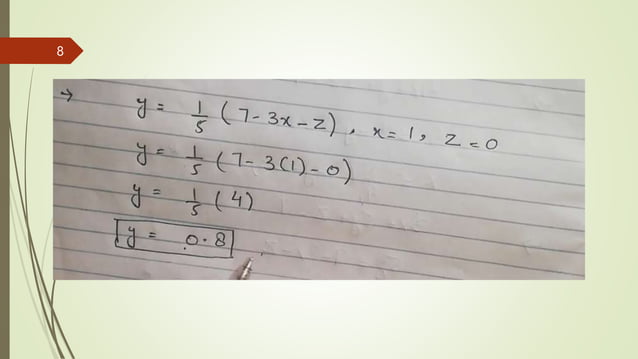 8
→ y = 1/5 (7 - 3x - z), x = 1, z = 0
y = 1/5 (7 - 3(1) - 0)
y = 1/5 (4)
y = 0.8